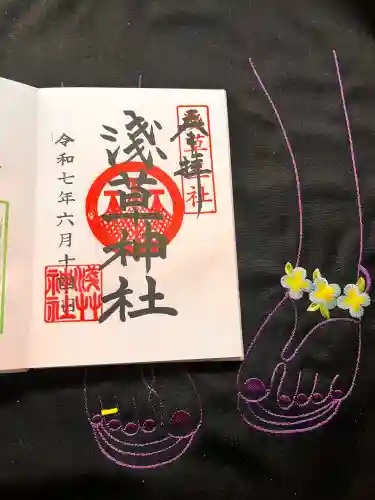 奉拝
草社
浅草神社
令和七年六月十
浅草
神社